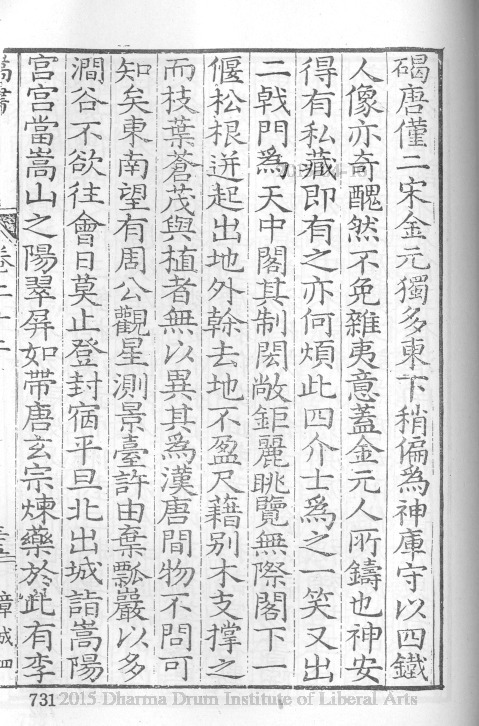 碣唐僅二宋金元獨多東下稍偏為神庫守以四鐵
人像亦奇醜然不免雜夷意蓋金元人所鑄也神安
得有私藏即有之亦何煩此四介士為之一笑又出
二戟門為天中閣其制閎敞鉅麗眺覽無際閣下一
偃松根迸起出地外榦去地不盈尺藉別木支撑之
而枝葉蒼茂與植者無以異其為漢唐間物不問可
知矣東南望有周公觀星測景臺許由棄瓢巖以多
澗谷不欲往會日莫止登封宿平旦北出城詣嵩陽
宮宮當嵩山之陽翠屏如帶唐玄宗煉藥於此有李
嵩書
卷二十二
章成四
731 2015 Dharma Drum Institute of Liberal Arts